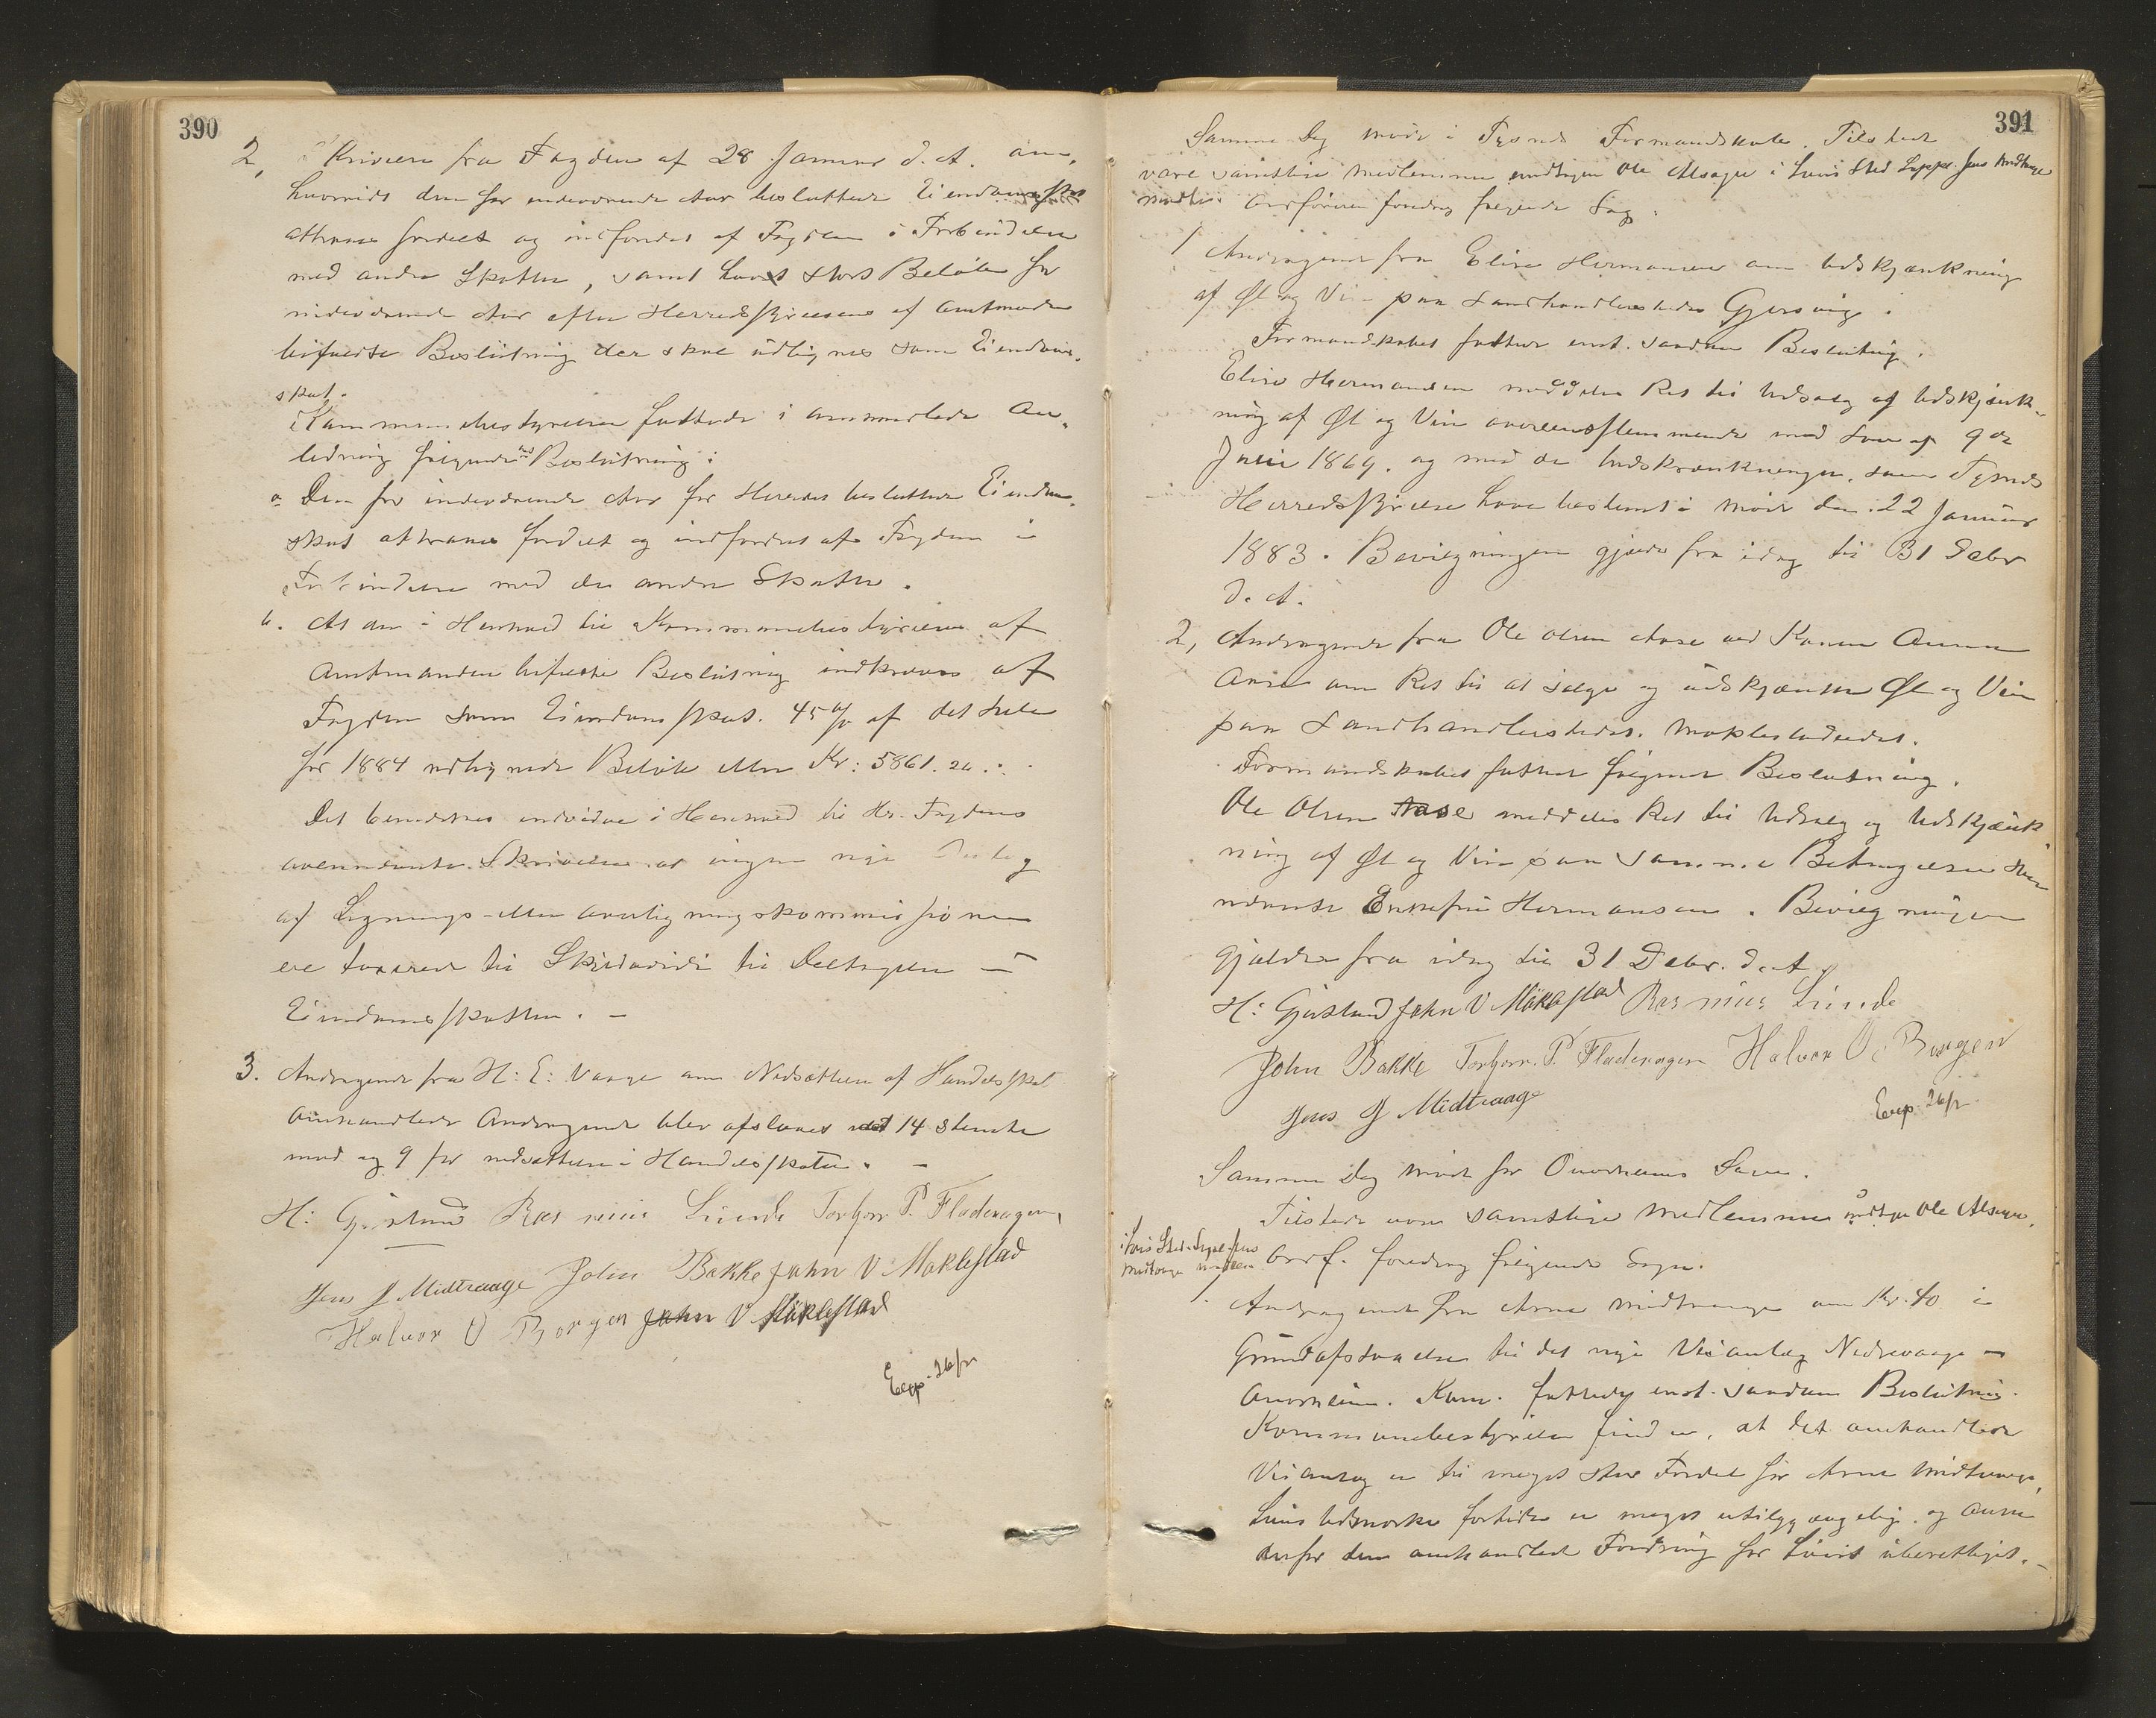 390
2, Skrivelse fra Fogden af 28 Januar d. A. om,
hvorvidt den for indeværende Aar besluttede Eiendomsskat
attraaes fordelt og indfordret af Fogden i Forbindelse
med andre Skatter, samt hvor stort Beløb for
indeværende Aar efter Herredsstyrelsens af Amtmanden
bifaldte Beslutning der skal udlignes som Eiendoms-
skat.
Kommunebestyrelsen fattede i ommeldte An-
ledning følgende Beslutning:
a Den for indeværende Aar for Herredet besluttede Eiendoms-
skat attraaes fordelt og indfordret af Fogden i
Forbindelse med de andre Skatter.
b. At der i Henhold til Kommunebestyrelsens af
Amtmanden bifaldte Beslutning indkræves af
Fogden som Eiendomsskat 45 % af det hele
for 1884 udlignede Beløb eller Kr: 5861.20.
Det bemærkes endvidere i Henhold til Hr. Fogdens
ovennævnte Skrivelse at ingen nye Anlæg
af Lignings- eller Overligningskommissionen
ere taxerede til Skyldværdi til Deltagelse i
Eiendomsskatten. -
3. Andragende fra H: E: Vaage om Nedsættelse af Handelsskat
Omhandlede Andragende blev afslaaet med 14 Stemmer
mod og 9 for nedsættelse i Handelsskatten. -
H: Gjerstad Rasmus Lunde Torbjørn P. Fladeragen
Jens J Midtvaage John Bakke John V Møklestad
Halvor O Borgen John V Møklestad
Exp. 26/2
391
Samme Dag møde i Tysnes Formandskab. Tilstede
vare samtlige Medlemmer undtagen Ole Alsager i hvis Sted Suppl. Jens Midtvaage
mødte. Ordføreren foredrog følgende Sag:
1 Andragende fra Elise Hermansen om Udskjænkning
af Øl og Vin paa Landhandlerstedet Gjersvig.
Formandskabet fattede enst. saadan Beslutning.
Elise Hermansen meddeles Ret til Udsalg og Udskjænk-
ning af Øl og Vin overensstemmende med Lov af 9de
Juni 1869. og med de Indskrænkninger, som Tysnes
Herredsstyrelse have bestemt i Møde den 22 Januar
1883. Bevilgningen gjælder fra idag til 31 Debr
d. A.
2, Andragende fra Ole Olsen Aase ved Konen Anna
Aase om Ret til at sælge og udskjænke Øl og Vin
paa Landhandlerstedet Møklestadeidet.
Formandskabet fattede følgende Beslutning.
Ole Olsen Aase meddeles Ret til Udsalg og Udskjænk
ning af Øl og Vin paa samme Betingelser som
nævnte Enkefru Hermansen. Bevilgningen
gjælder fra idag til 31 Debr. d. A.
H: Gjerstad John V Møklestad Rasmus Lunde
John Bakke Torbjørn P Fladeragen Halvor O: Borgen
Jens J Midtvaage
Exp. 26/2
Samme Dag møde for Onarheims Sogn.
Tilstede vare samtlige Medlemmer undtagen Ole Alsager,
i hvis Sted Suppl. Jens
Midtvaage mødte. Ordf. foredrog følgende Sager.
1 Andragende fra Arne Midtvaage om Kr. 40 i
Grundafstaaelse til det nye Veianlæg Nedrevaage -
Onarheim. Kom. fattede enst. saadan Beslutning.
Kommunebestyrelsen finder, at det omhandlede
Veianlæg er til meget stor Fordel for Arne Midtvaage,
hvis Udmarker fortiden er meget utilgjængelig, og anser
derfor den omhandlede Fordring for høist uberettiget. -